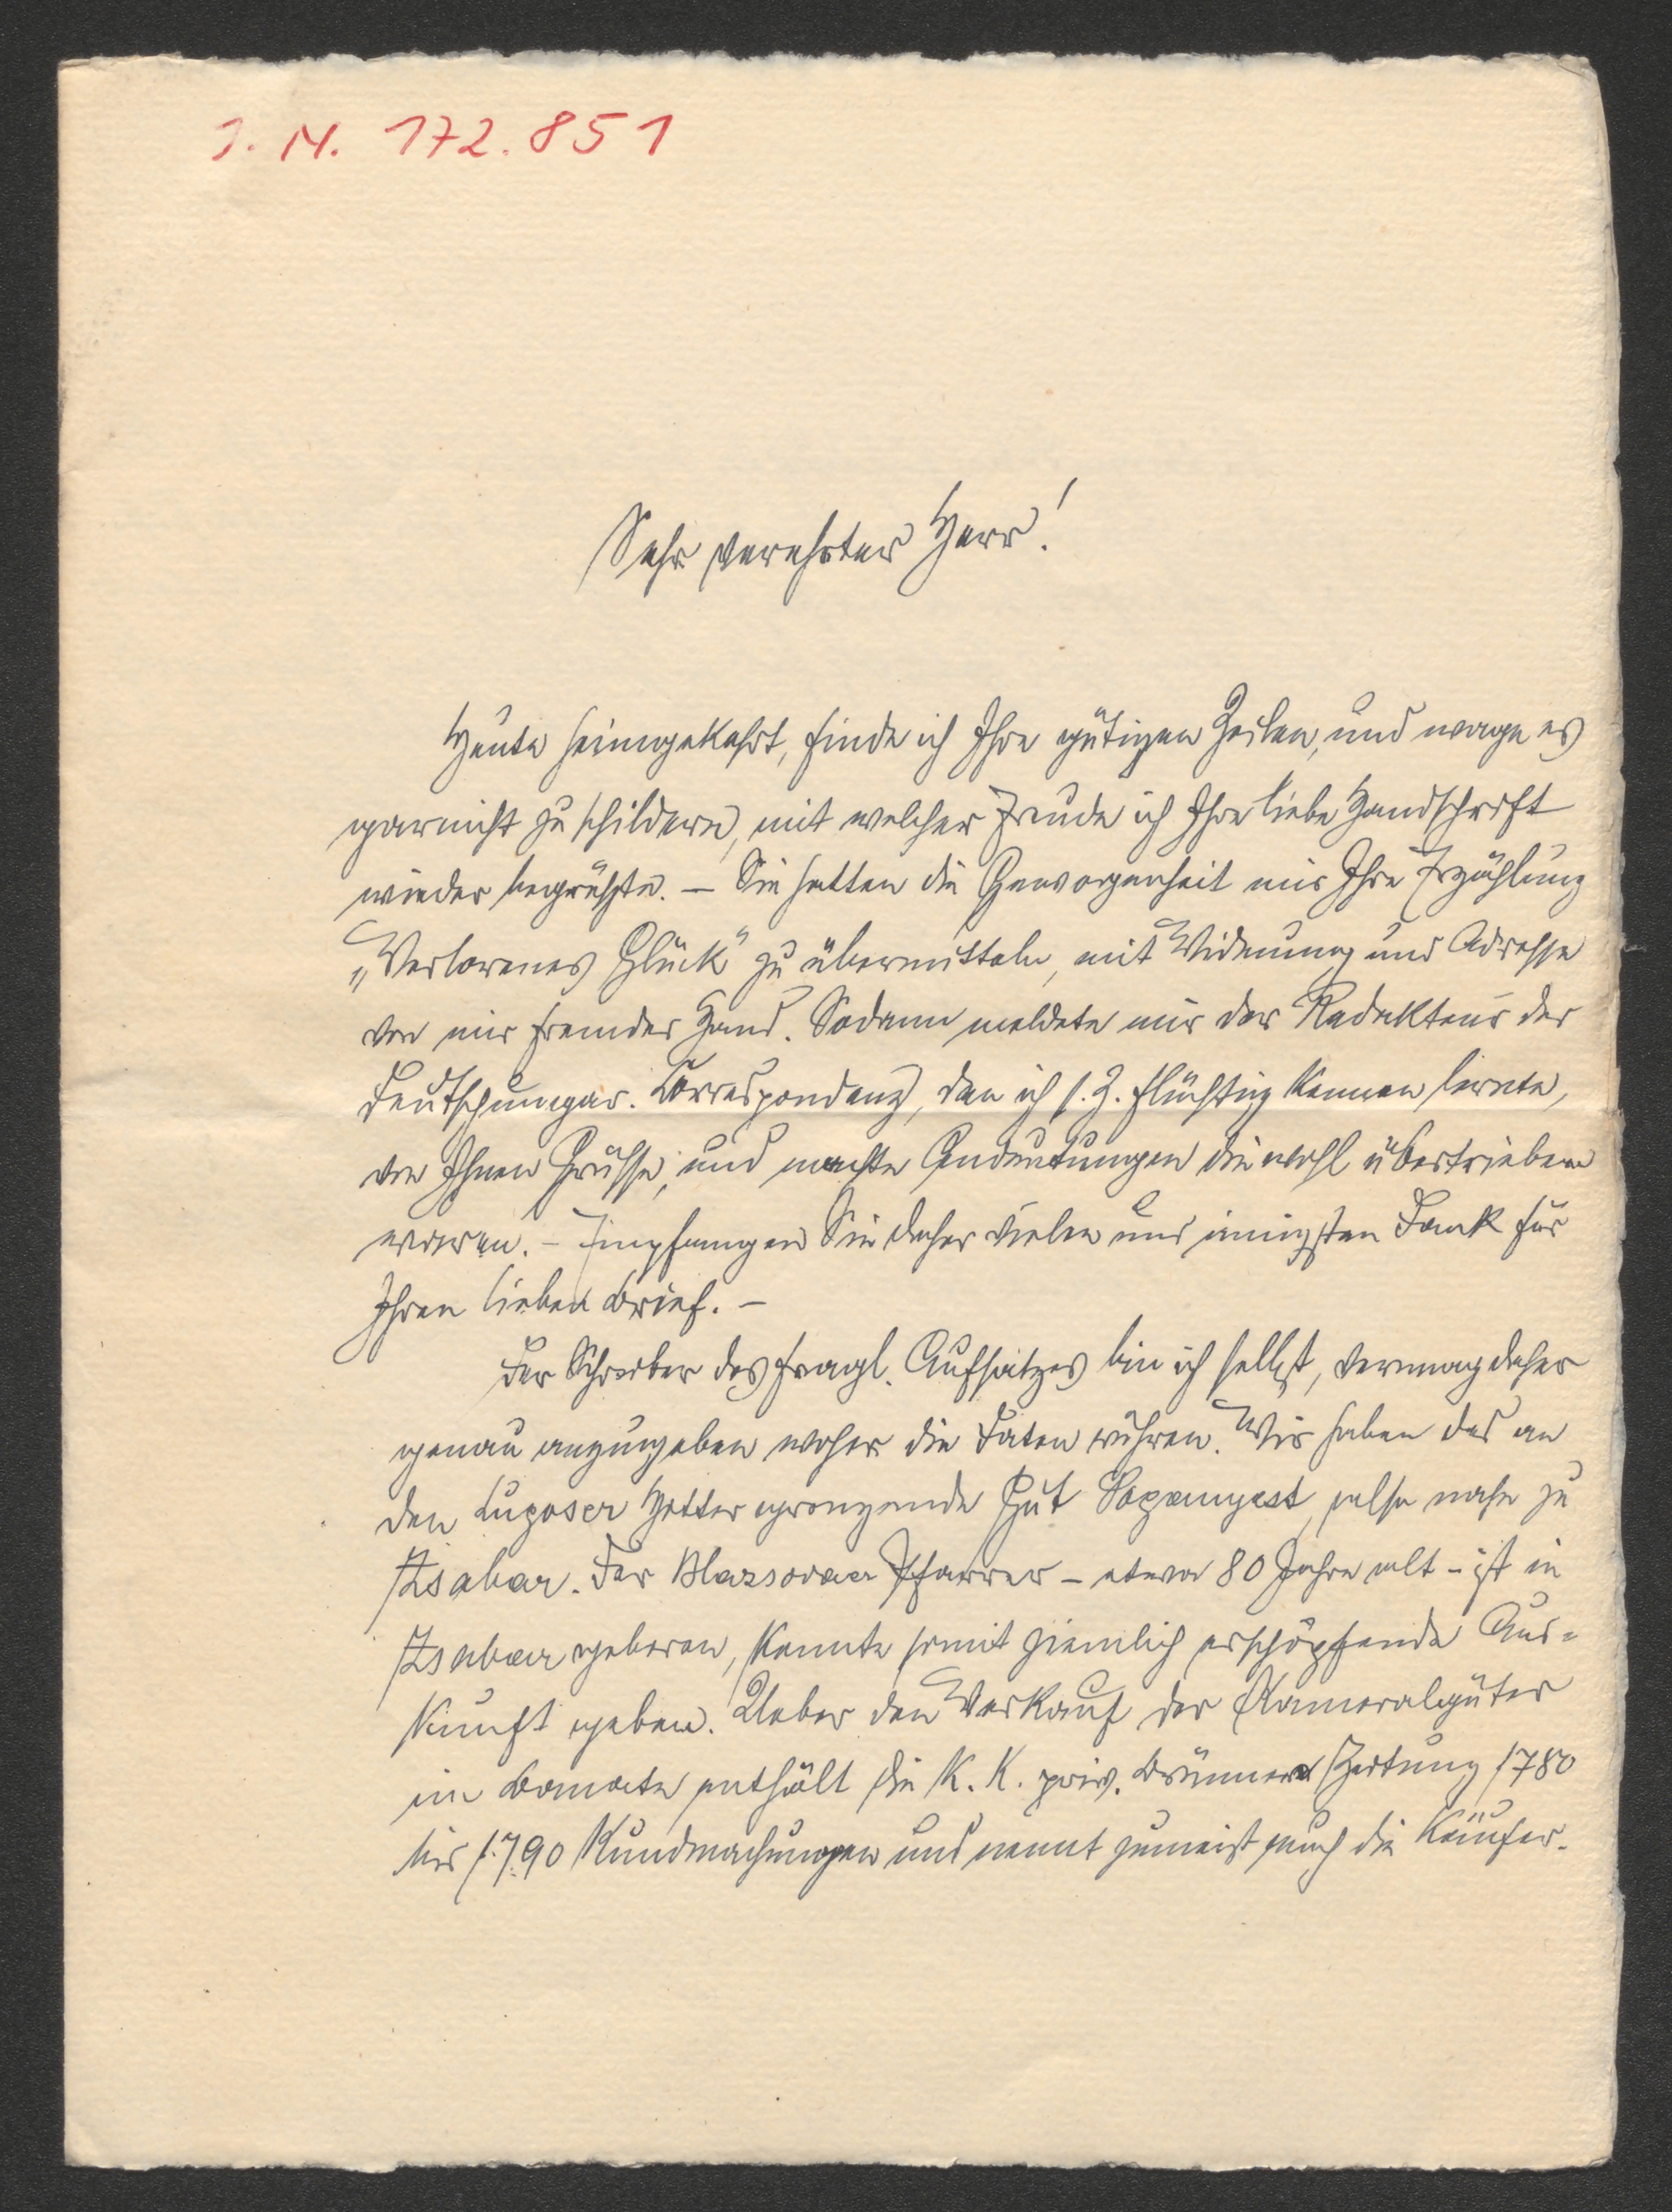 J. N. 172.851
Sehr verehrter Herr!
Heute heimgekehrt, finde ich Ihre gütigen Zeilen, und wage es
garnicht zu schildern, mit welcher Freude ich Ihre liebe Handschrift
wieder begrüßte. – Sie hatten die Gewogenheit mir Ihre Erzählung
„Verlorenes Glück" zu übermitteln, mit Widmung und Adresse
von mir fremder Hand. Sodann meldete mir der Redakteur der
Deutschungar. Correspondenz, den ich s. Z. flüchtig kennen lernte,
von Ihnen Grüsse, und machte Andeutungen die wohl übertrieben
waren. – Empfangen Sie daher vielen und innigsten Dank für
Ihren lieben Brief. –
Der Schreiber des fragl. Aufsatzes bin ich selbst, vermag daher
genau anzugeben woher die Daten rühren. Wir haben das an
den Lugoser Hotter grenzende Gut , also nahe zu
Zsabar. Der Pfarrer – etwa 80 Jahre alt – ist in
Zsabar geboren, konnte somit ziemlich erschöpfende Aus=
kunft geben. Ueber den Verkauf der Kameralgüter
im Banate enthält die K. K. priv. Brünner Zeitung 1780
bis 1790 Kundmachungen und nennt zumeist auch die Käufer.